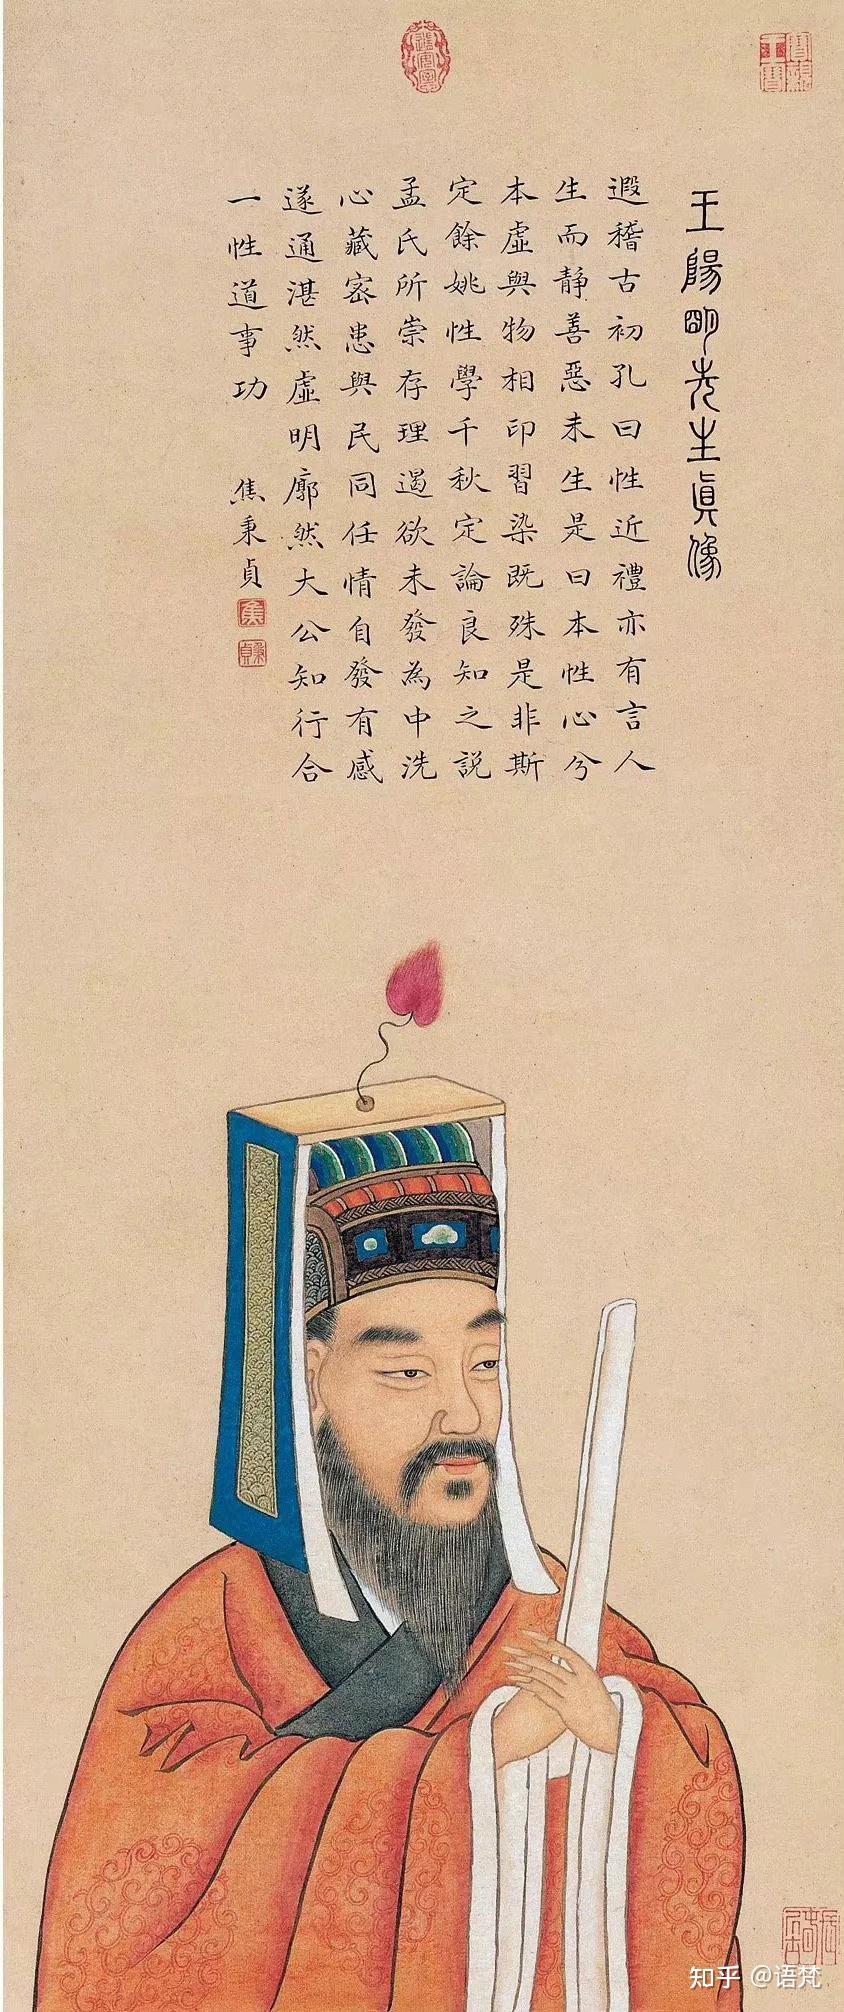 王陽明先生眞像
遐稽古初孔曰性近禮亦有言人
生而静善惡未生是曰本性心兮
本虛與物相印習染既殊是非斯
定餘姚性學千秋定論良知之說
孟氏所崇存理遏欲未發為中洗
心藏密患與民同任情自發有感
遂通湛然虛明廓然大公知行合
一性道事功 焦秉貞
焦
秉貞
知乎 @语梵